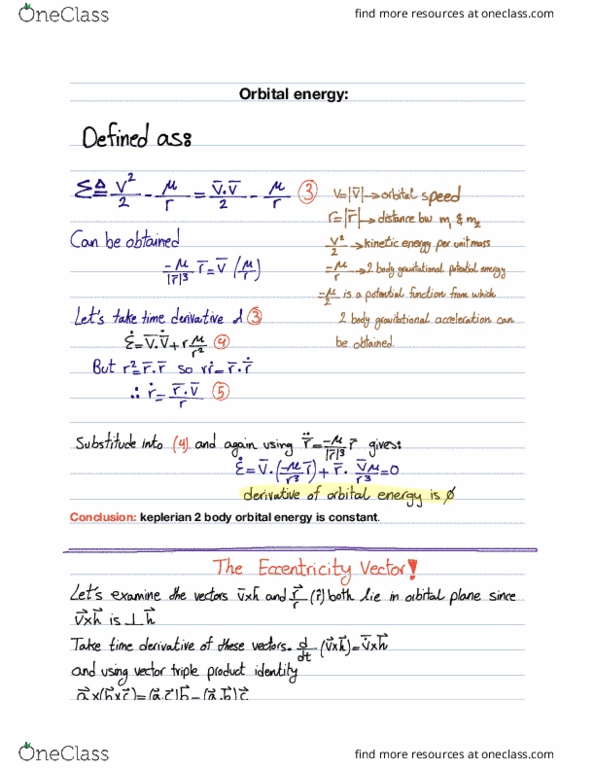 OneClass
find more resources at oneclass.com
Orbital energy:
Defined as:
Ɛ ≜ V²/2 - μ/r = v̄·v̄/2 - μ/r ③
V=|v̄| → orbital speed
r=|r̄| → distance bw m₁ & m₂
V²/2 → kinetic energy per unit mass
-μ/r → 2 body gravitational potential energy
-μ/2 is a potential function from which
2 body gravitational acceleration can
be obtained
Can be obtained
-μ/|r̄|³ r̄ = v̄ (μ/r)
Let's take time derivative of ③
Ɛ̇ = v̄·v̄̇ + ṙ μ/r² ④
But r²=r̄·r̄ so rṙ=r̄·r̄̇
∴ ṙ = r̄·v̄/r ⑤
Substitude into (4) and again using r̄̈ = -μ/|r̄|³ r̄ gives:
Ɛ̇ = v̄·(-μ/r³ r̄) + r̄·v̄μ/r³ = 0
derivative of orbital energy is ∅
Conclusion: keplerian 2 body orbital energy is constant.
The Eccentricity Vector!
Let's examine the vectors v̄xh̄ and r⃗/r (r̂) both lie in orbital plane since
v⃗xh⃗ is ⊥ h⃗
Take time derivative of these vectors. d/dt (v⃗xh⃗) = v⃗̇xh⃗
and using vector triple product identity
a⃗x(b⃗xc⃗)=(a⃗.c⃗)b⃗-(a⃗.b⃗)c⃗
OneClass
find more resources at oneclass.com